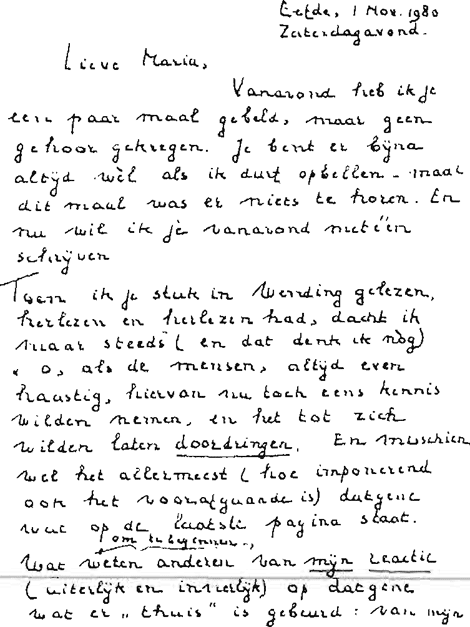 Eefde, 1 Nov. 1980
Zaterdagavond.
Lieve Maria,
Vanavond heb ik je
een paar maal gebeld, maar geen
gehoor gekregen. Je bent er bijna
altijd wèl als ik durf opbellen - maar
dit maal was er niets te horen. En
nu wil ik je vanavond metéén
schrijven
Toen ik je stuk in Wending gelezen,
herlezen en herlezen had, dacht ik
maar steeds (en dat denk ik nòg)
" o, als de mensen, altijd even
haastig, hiervan nu toch eens kennis
wilden nemen, en het tot zich
wilden laten doordringen. En misschien
wel het allermeest (hoe imponerend
ook het voorafgaande is) datgene
wat op de laatste pagina staat.
om te beginnen -,
Wat weten anderen van mijn reactie
(uiterlijk en innerlijk) op datgene
wat er "thuis" is gebeurd: van mijn